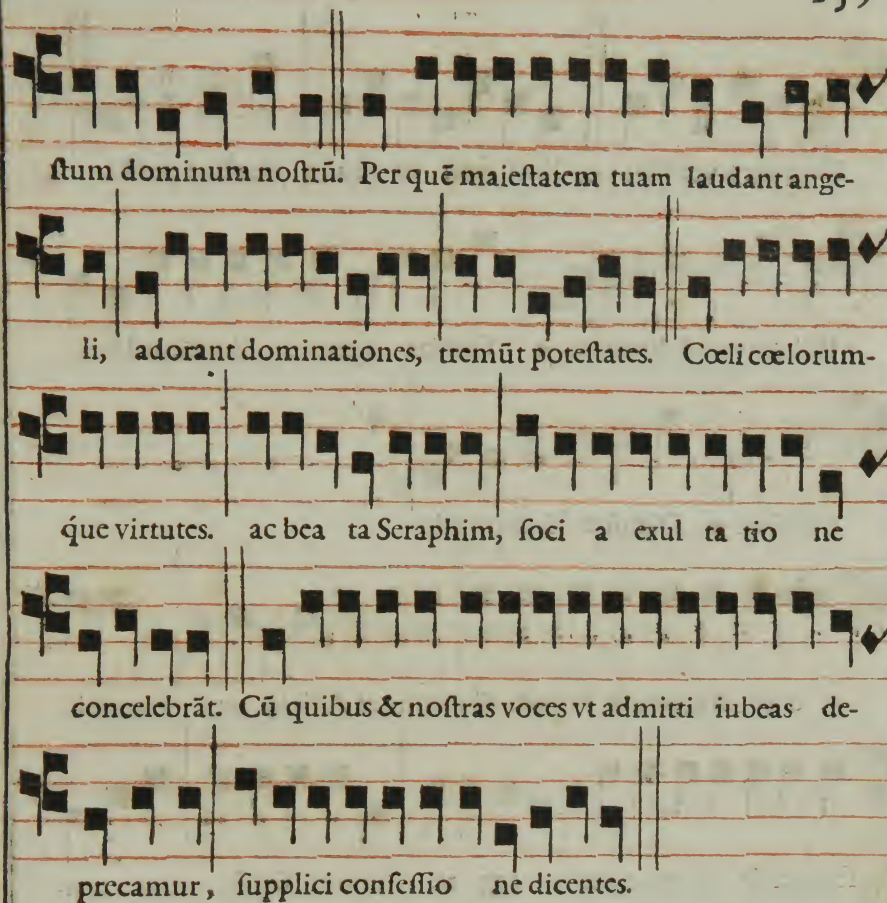 ſtum dominum noſtrū. Per quē maieſtatem tuam laudant ange-
li, adorant dominationes, tremūt poteſtates. Cœli cœlorum-
q́ue virtutes. ac bea ta Seraphim, ſoci a exul ta tio ne
concelebrāt. Cū quibus & noſtras voces vt admitti iubeas de-
precamur, ſupplici confeſſio ne dicentes.